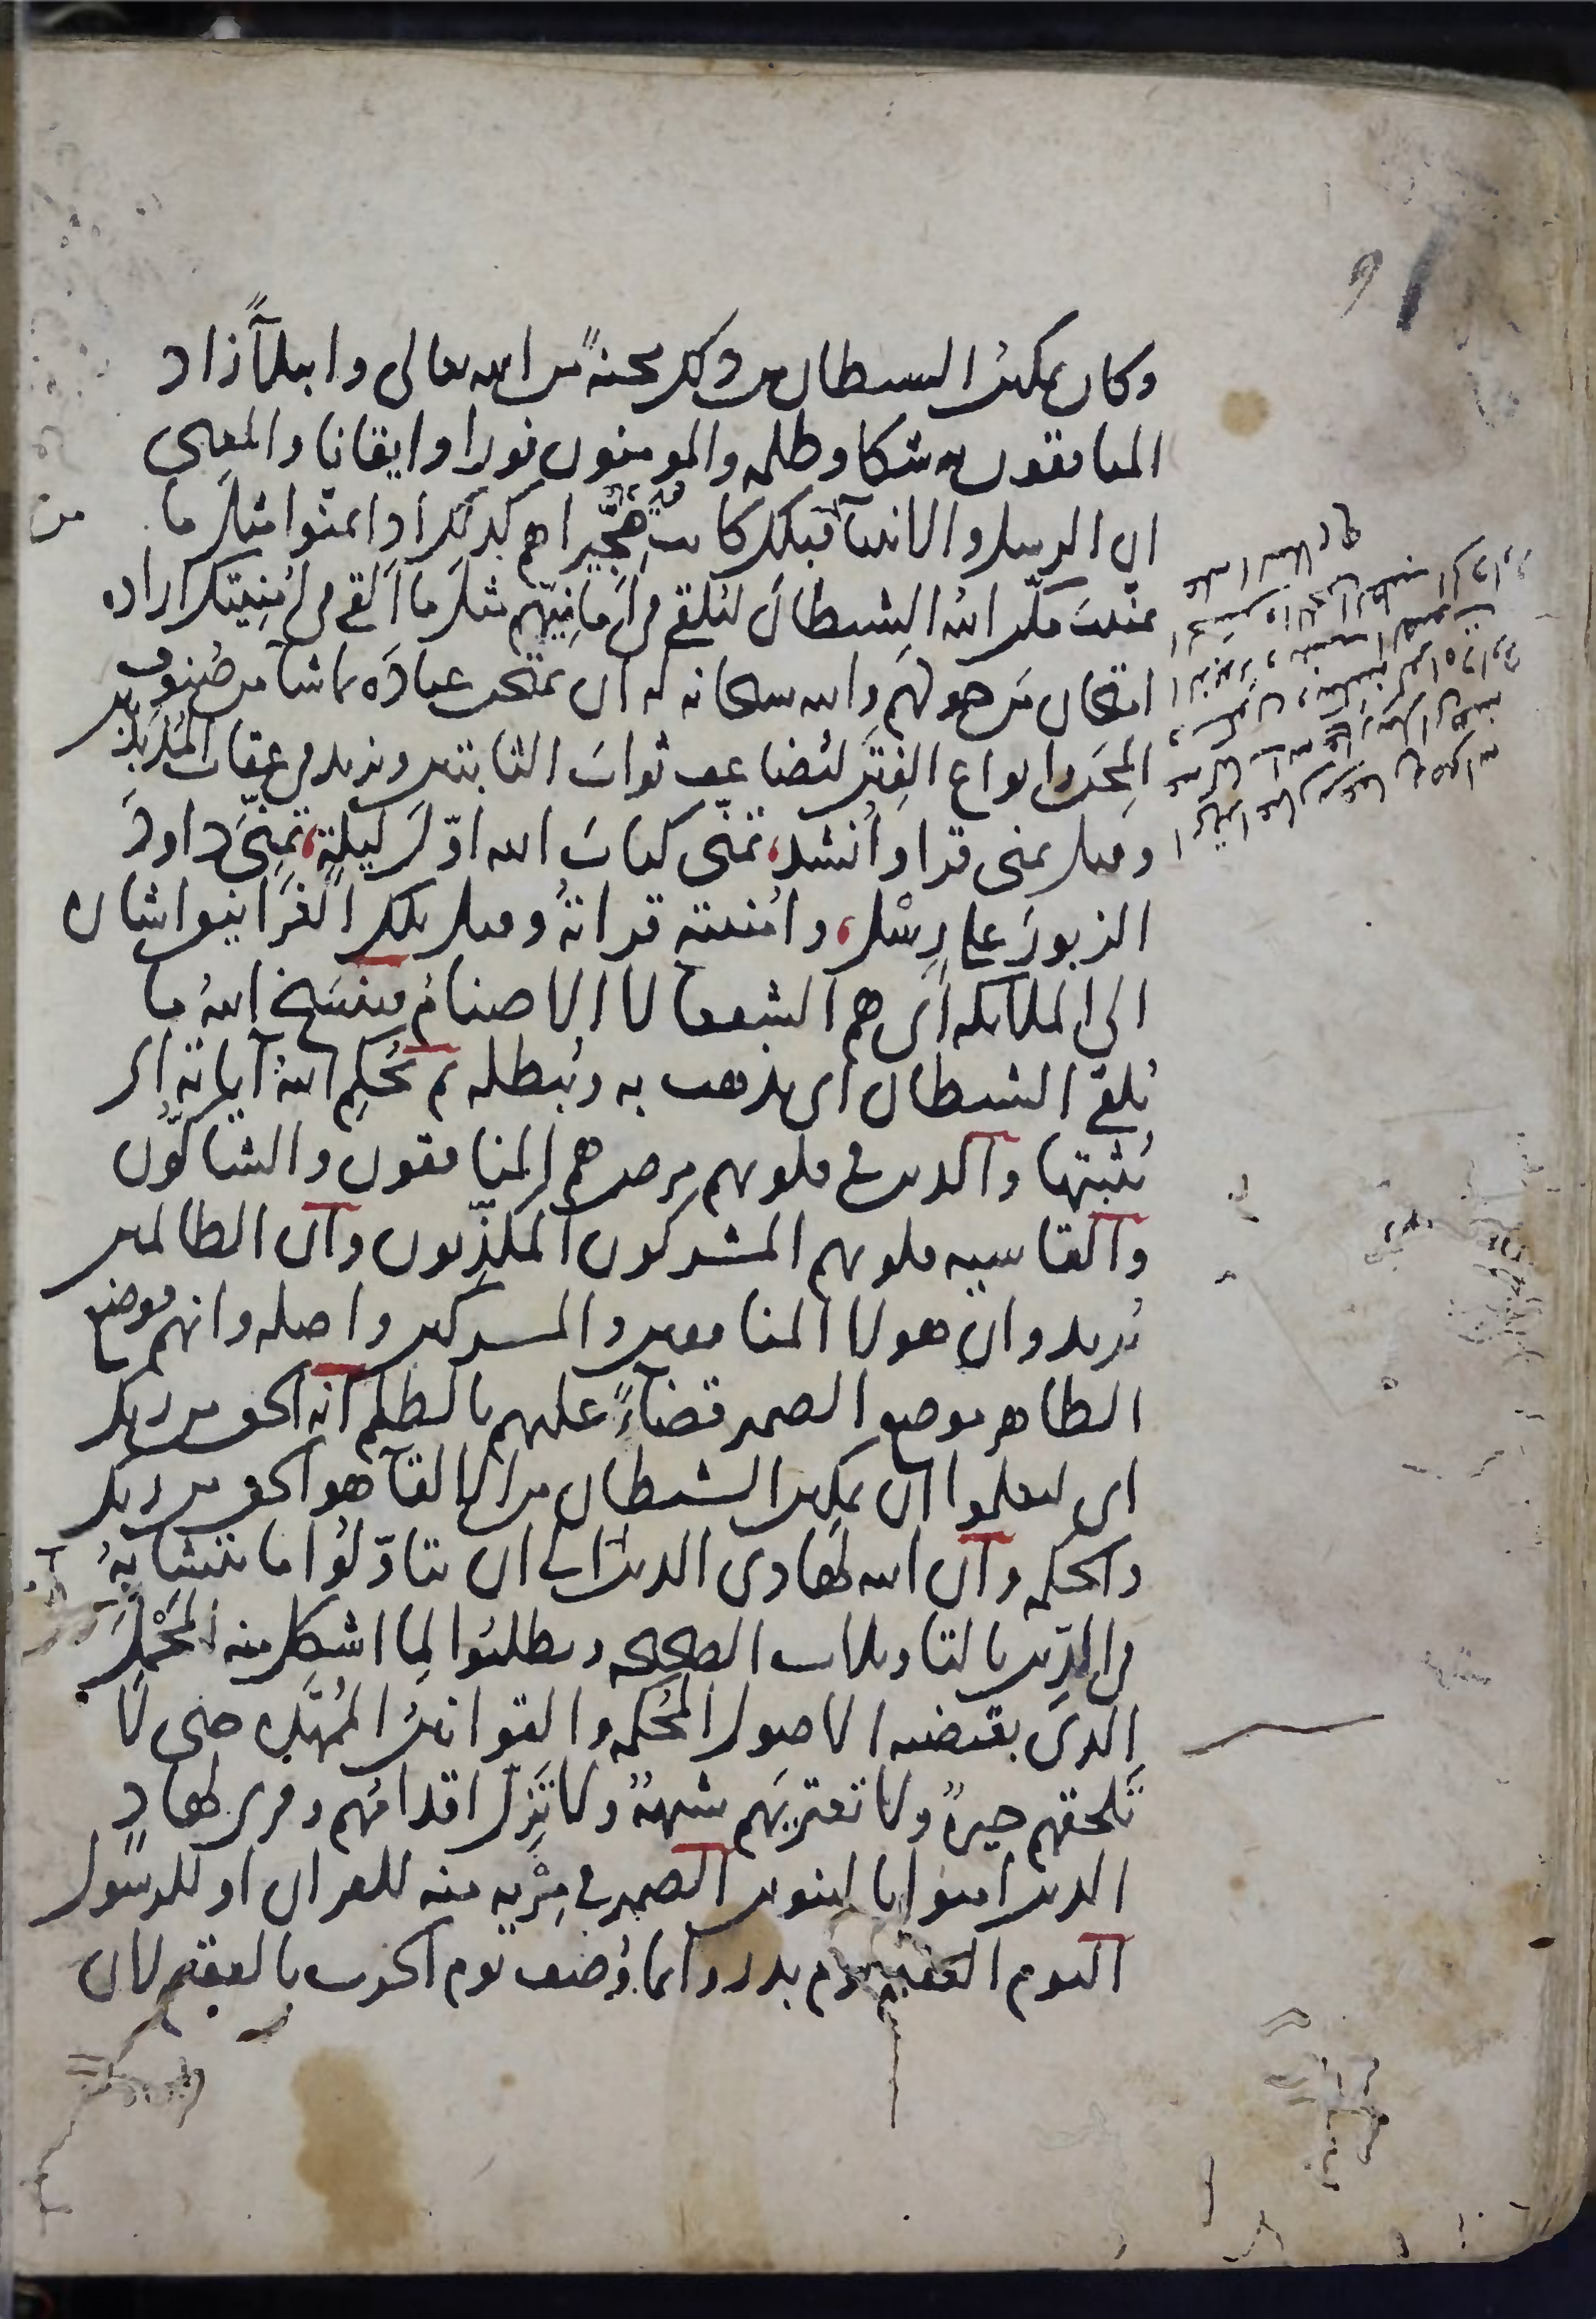 وكان تمكين الشيطان من ذلك محنة من الله تعالى وابتلآ زاد
المنافقون به شكا وظلمه والمومنون نورا وايقانا والمعنى
ان الرسل والانبيآ قبلك كانت هجيراهم كذلك اذا تمنوا مثل ما
تمنيت مكن الله الشيطان ليلقى فى امانيهم مثل ما القى فى امنيتك اراده
امتحان من حولهم والله سبحانه له ان يمتحن عباده بما شآ من صنوف
المحن وانواع الفتن ليضاعف ثواب الثابتين ويزيد فى عقاب المذبذبين
وقيل تمنى قرا وانشد، تمنى كتاب الله اول ليلة، تمنى داود
الزبور على رسل، وامنيته قراته وقيل تلك الغرانيق اشاره
الى الملآئكه اى هم الشفعآ لا الاصنام فينسخ الله ما
يلقى الشيطان اى يذهب به ويبطله ثم يحكم الله آياته اى
يثبتها والذين فى قلوبهم مرض هم المنافقون والشاكون
والقاسيه قلوبهم المشركون المكذبون وان الظالمين
يريد وان هولا المنافقين والمشركين واصله وانهم فوضع
الظاهر موضع الضمير قضآءً عليهم بالظلم انه الحق من ربك
اى ليعلموا ان تمكين الشيطان من الالقآ هو الحق من ربك
والحكمه وان الله لهادى الذين امنوا الى ان يتاولوا ما يتشابه
فى الدين بالتاويلات الصحيحه ويطلبوا لما اشكل منه المحمل
الذى يقتضيه الاصول المحكمه والقوانين الممهده حتى لا
تلحقهم حيرة ولا تعتريهم شبهة ولا تزل اقدامهم وقرى لهادٍ
الذين امنوا بالتنوين الضمير فى مريه منه للقران او للرسول
اليوم العقيم يوم بدر وانما وصف يوم الحرب بالعقيم لان